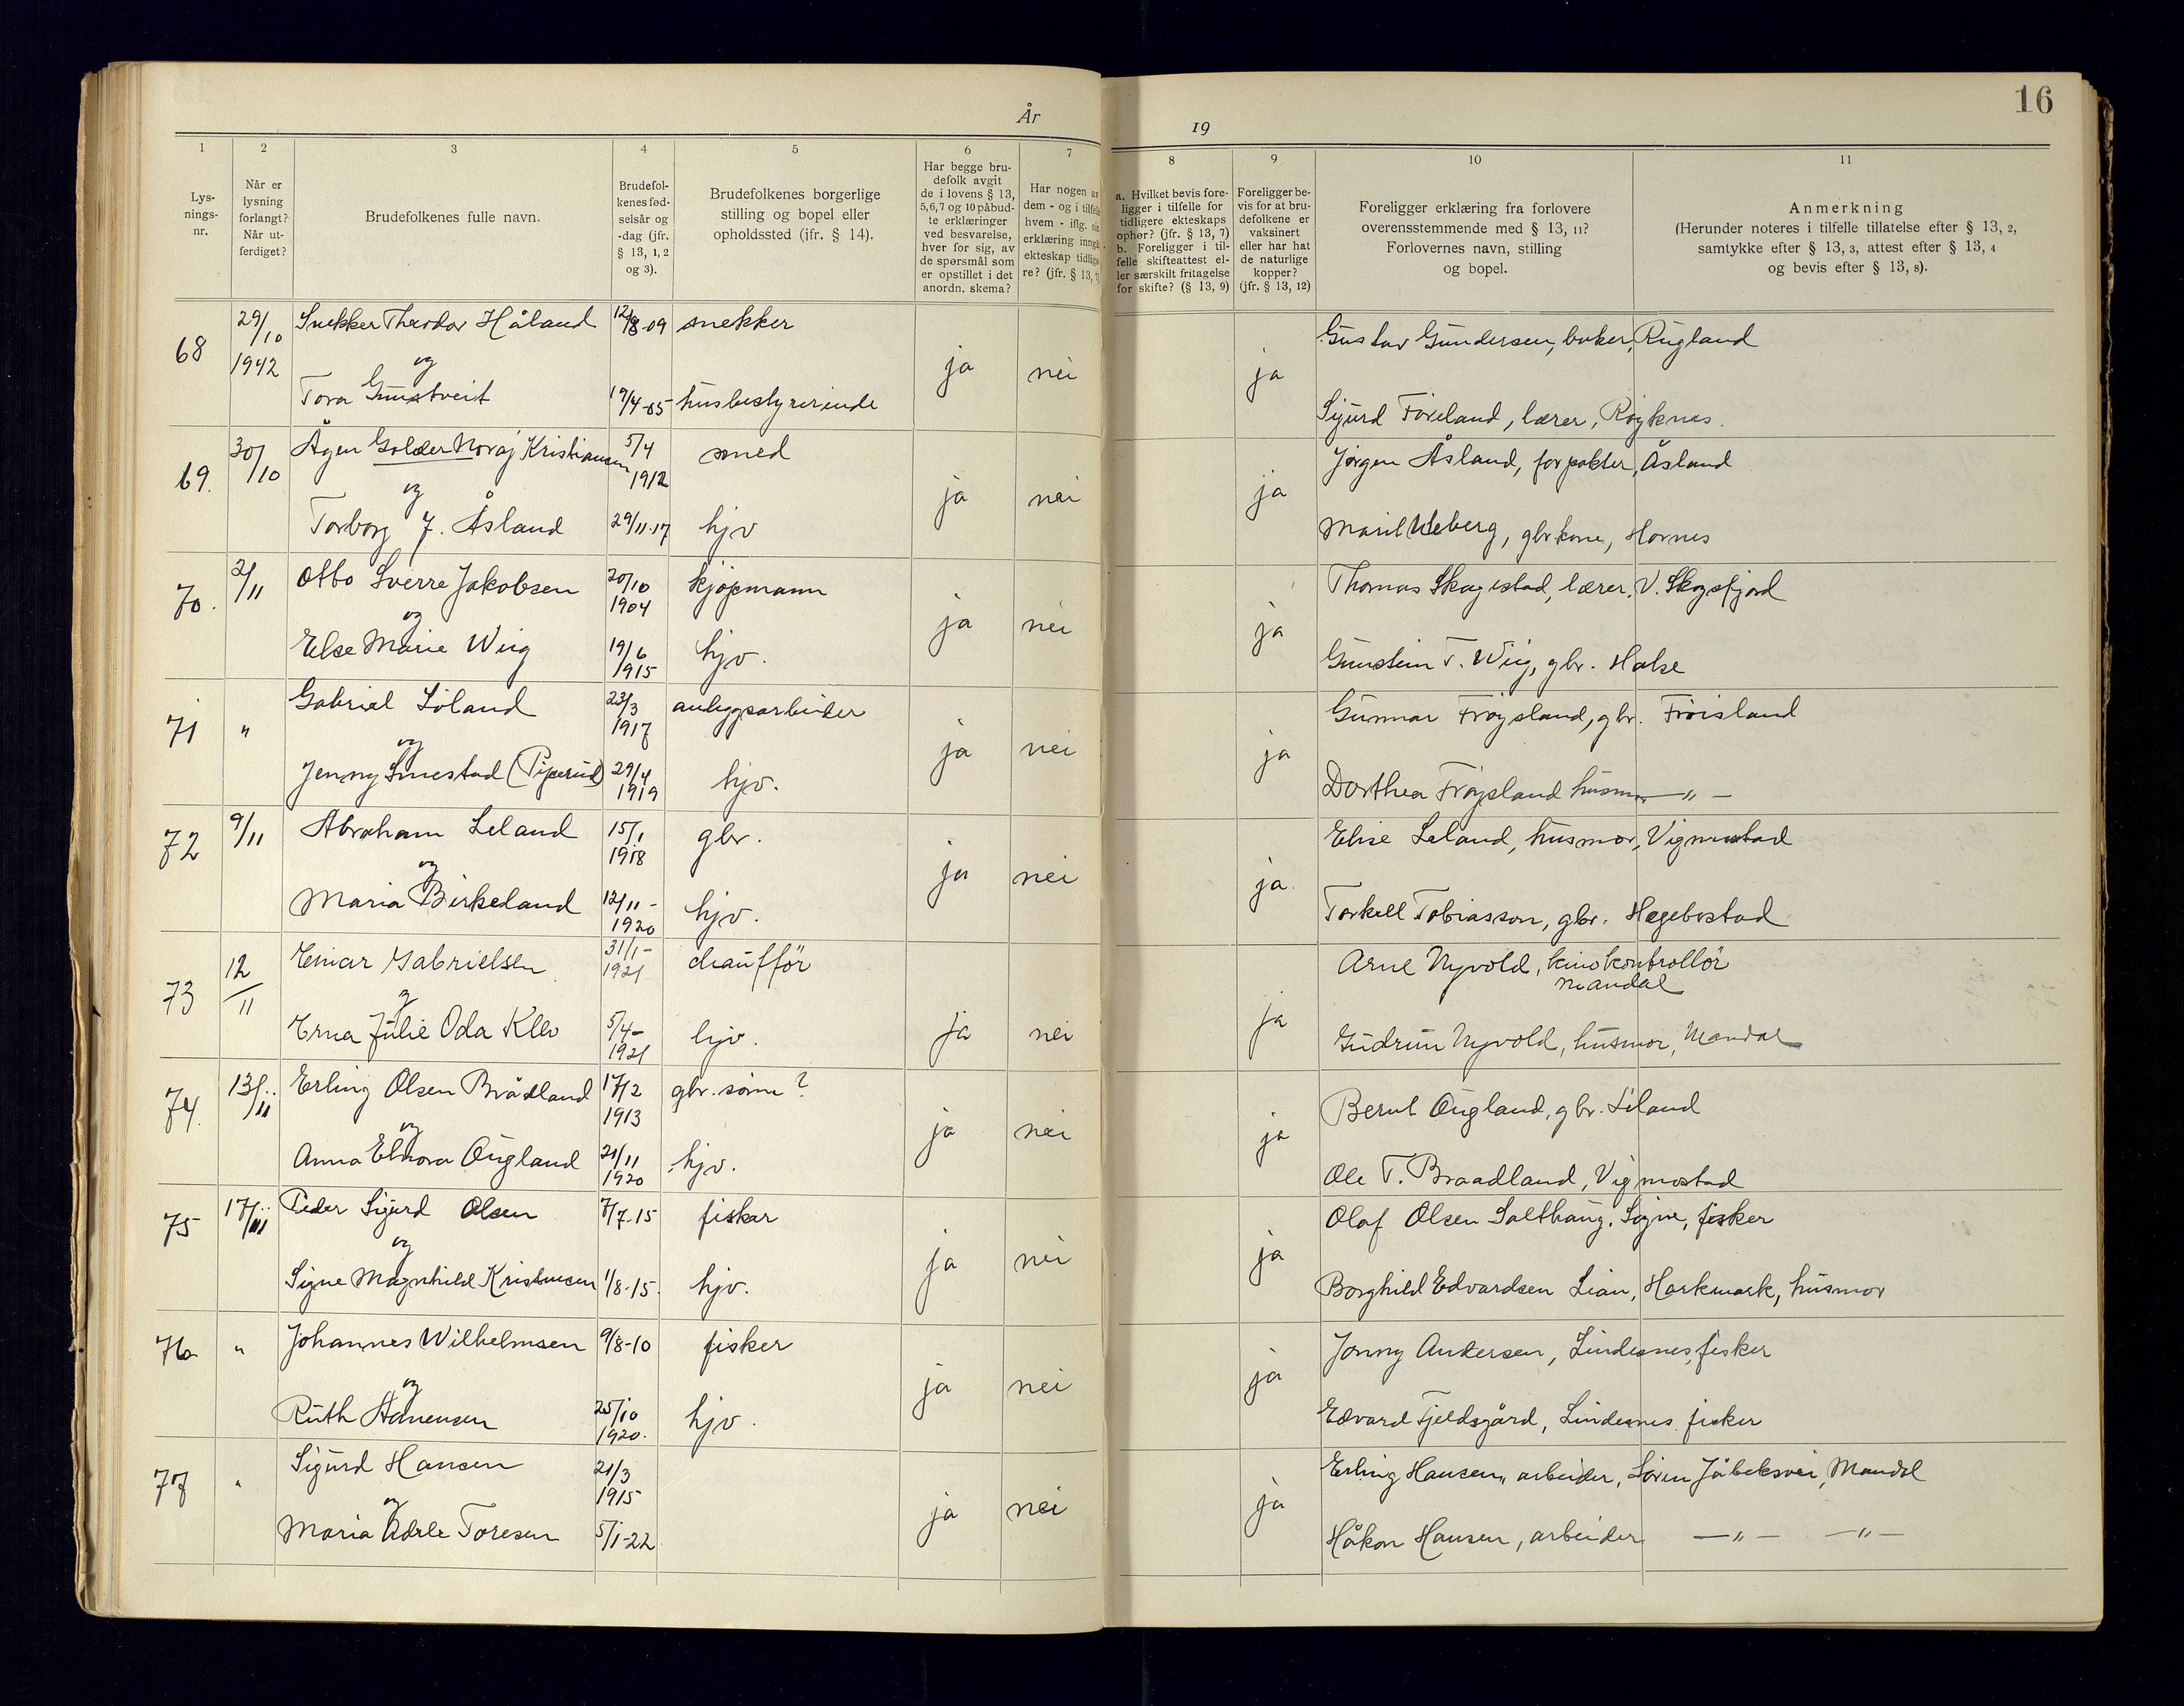 År
19
16
1
2
3
4
5
6
7
8
9
10
11
Lys-
nings-
nr.
Når er
lysning
forlangt?
Når ut-
ferdiget?
Brudefolkenes fulle navn.
Brudefol-
kenes fød-
selsår og
-dag (jfr.
§ 13, 1, 2
og 3).
Brudefolkenes borgerlige
stilling og bopel eller
opholdssted (jfr. § 14).
Har begge bru-
defolk avgit
de i lovens § 13,
5, 6, 7 og 10 påbud-
te erklæringer
ved besvarelse,
hver for sig, av
de spørsmål som
er opstillet i det
anordn. skema?
Har nogen av
dem - og i tilfelle
hvem - iflg. sin
erklæring inngå
ekteskap tidlige-
re? (jfr. § 13, 7)
a. Hvilket bevis fore-
ligger i tilfelle for
tidligere ekteskaps
ophør? (jfr. § 13, 7)
b. Foreligger i til-
felle skifteattest el-
ler særskilt fritagelse
for skifte? (§ 13, 9)
Foreligger be-
vis for at bru-
defolkene er
vaksinert
eller har hat
de naturlige
kopper?
(jfr. § 13, 12)
Foreligger erklæring fra forlovere
overensstemmende med § 13, 11?
Forlovernes navn, stilling
og bopel.
Anmerkning
(Herunder noteres i tilfelle tillatelse efter § 13, 2,
samtykke efter § 13, 3, attest efter § 13, 4
og bevis efter § 13, 8).
68 29/10 1942 Snekker Theodor Håland 12/8-09 snekker Gustav Gundersen, baker, Rugland
og ja nei ja
Tora 19/4-05 husbestyrerinde Sigurd Föreland, lærer, Röyknes.
69. 30/10 Ågen Golder Noraj Kristiansen 5/4 1912 smed Jørgen Åsland, forpakter, Åsland
og ja nei ja
Torborg J. Åsland 29/11-17 hjv Marit Ueberg, gbrkone, Hornes
70. 2/11 Otto Sverre Jakobsen 20/10 1904 kjøpmann Thomas Skagestad, lærer, V. Skogsfjord
og ja nei ja
Else Marie Wiig 19/6 1915 hjv. Gunstein T. Wiig, gbr. Halse
71 " Gabriel Löland 23/3 1917 anleggsarbeider Gunnar Fröysland, gbr. Fröisland
og ja nei ja
Jenny Smestad (Piperud) 29/4 1919 hjv. Dorthea Fröysland husmor —"—
72 9/11 Abraham Leland 15/1 1918 gbr. Elise Leland, husmor, Vigmostad
og ja nei ja
Maria Birkeland 12/11- 1920 hjv. Torkell Tobiasson, gbr. Hægebostad
73 12/11 Einar Gabrielsen 31/1- 1921 chaufför Arne Nyvold, kinokontrollör
Mandal
og ja nei ja
Erna Julie Oda Klev 5/4- 1921 hjv. Gudrun Nyvold, husmor, Mandal
74. 13/11 Erling Olsen Brådland 17/2 1913 gbr. sönn? Bernt Öugland, gbr.
og ja nei ja
Anna Elnora Öugland 21/11 1920 hjv. Ole T. Braadland, Vigmostad
75 17/11 Peder Sigurd Olsen 7/7-15 fisker Olaf Olsen Salthaug, Sögne, fisker
og ja nei ja
Signe Magnhild Kristensen 1/8-15. hjv. Borghild Edvardsen Lian, Harkmark, husmor
76 " Johannes Wilhelmsen 9/8-10 fisker Jonny Andersen, Lindesnes, fisker
og ja nei ja
Ruth 25/10 1920. hjv. Edvard Fjeldsgård, Lindesnes fisker
77 " Sigurd Hansen 21/3 1915 Erling Hansen, arbeider, Sören Jåbeksvei, Mandal
og ja nei ja
Maria Adele Toresen 5/1-22 Håkon Hansen, arbeider —"— —"—